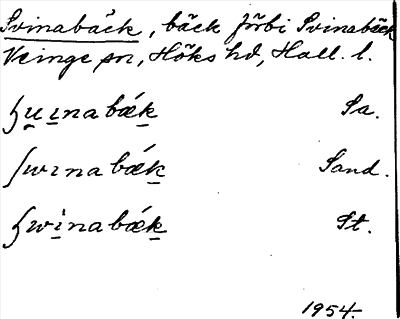 Svinabäck, bäck förbi Svinabäck
Veinge sn, Höks hd, Hall. l.
ʂu̯i̱nabǽḵ Sa.
ʃwɪnabǽḵ Sand.
ʂwi̱nabǽḵ St.
1954.